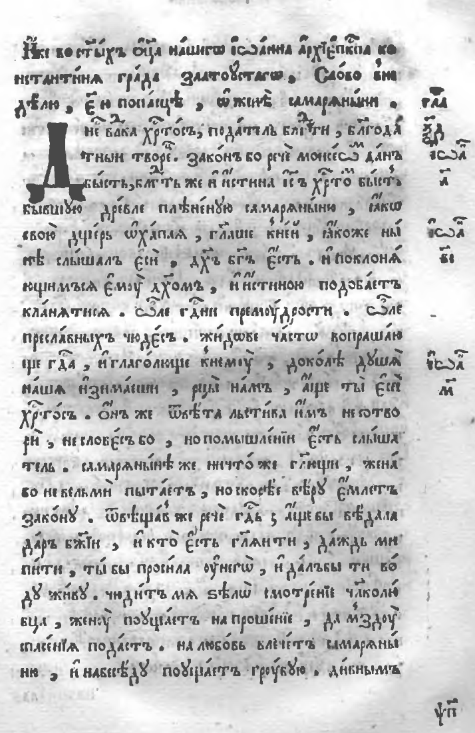 И҆́же во ст҃ы́хъ ѻ҆ц҃а̀ на́шегѡ і҆ѡа́нна а҆рхїепⷭ҇кпа ко
нстантинѧ гра́да златоу́стагѡ, Сло́во в не
дѣ́лю, є҃ и по па́щѣ, ѡ҆ женѣ̀ самарѧны́ни.
Дне́ вл҃ка хрⷭ҇то́съ, пода́тель блгⷣти, бл҃года́
тный творѐ. Зако́нъ бо речѐ моисеѡⷨ да́нъ
бы́сть, блгⷣть же и҆ и҆́стина і҆с҃ъ хрⷭ҇то́ⷨ бы́сть
бы́вшую дре́вле плѣне́ную самарѧны́ню, ꙗ҆́кѡ
свою̀ дще́рь ѡ҆ха́плѧѧ, гл҃аше к не́й, ꙗ҆́коже ны́
нѣ слы́шалъ є҆сѝ, дх҃ъ бг҃ъ є҆́сть. и҆ поклонѧ́
ющимъсѧ є҆мꙋ̀ дх҃омъ, и҆ и҆́стиною подоба́етъ
кла́нѧтисѧ. Ѽле гдⷭ҇ни премꙋ́дрости. Ѽле
пресла́вныхъ чюде́съ. жи́дѡве ча́стѡ вопраша́ю
ще гдⷭ҇а, и҆ глаго́люще к немꙋ̀, доко́лѣ дꙋ́шѧ
на́шѧ и҆зима́еши, рцы̀ на́мъ, а҆́ще ты̀ є҆сѝ
хрⷭ҇то́съ. Ѻ҆́нъ же ѿвѣ́та льсти́ва и҆̀мъ не сотво
рѝ, не слове́съ бо, но помышле́нїи є҆́сть слы́ша
тель. самарѧны́нѣ же ничто́же гл҃ющи, жена̀
бо не вельмѝ пыта́етъ, но скорѣ́е вѣ́рꙋ є҆́млетъ
зако́нꙋ. ѿвѣща́в же речѐ гдⷭ҇ь ; а҆́ще бы вѣ́дала
да́ръ бж҃їи, и҆ кто̀ є҆́сть гл҃ѧи ти, да́ждь ми
пи́ти, ты̀ бы проси́ла ᲂу҆ негѡ̀, и҆ да́лъ бы ти во́
дꙋ жи́вꙋ. чюди́тъ мѧ ѕѣлѡ̀ смотре́нїе чл҃колю́
бца, женꙋ̀ поꙋща́етъ на проше́нїе, да мздꙋ̀
спⷭ҇е́нїѧ пода́стъ. на любо́вь влече́тъ самарѧны́
ню, и҆ на бесѣ́дꙋ поꙋща́етъ грꙋ́бꙋю. ди́внымъ
гла
ѯд
і҆ѡа
а҃
і҆ѡа
ве
і҆ѡа
м҃
ѱп҃